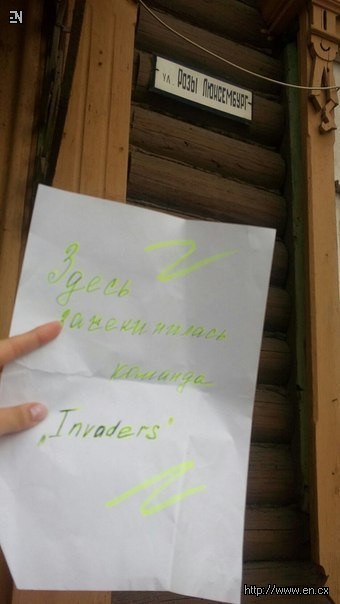 EN
ул. РОЗЫ ЛЮКСЕМБУРГ
Здесь
зачекинилась
команда
„Invaders"
http://www.en.cx